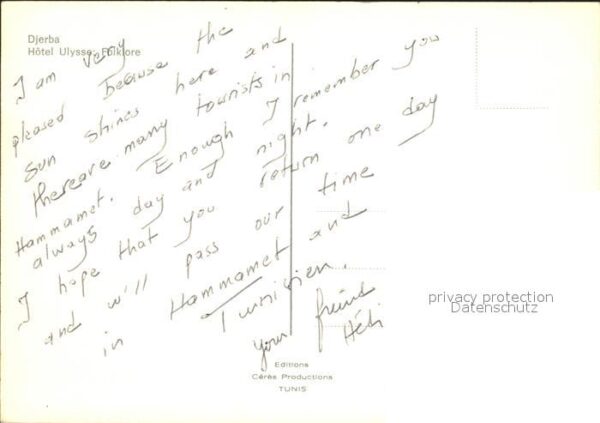 Djerba
Hôtel Ulysse: Folklore
I am very
pleased because the
sun shines here and
thereare many tourists in
Hammamet. Enough I remember you
always day and night.
I hope that you return one day
and w'll pass our time
in Hammamet and
Tunisien.
your freind
Hédi
privacy protection
Datenschutz
Editions
Cérès Productions
TUNIS